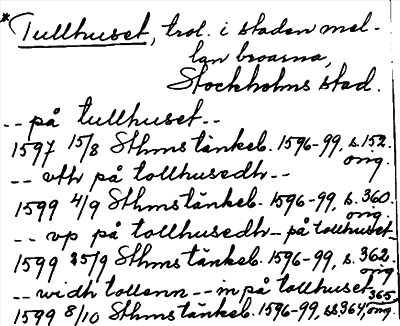 *Tullhuset, trol. i staden mel-
lan broarna,
Stockholms stad.
-- på tullhuset --
1597 15/8 Sthms tänkeb. 1596-99, s. 152.
orig.
-- vth på tollhusedh --
1599 4/9 Sthms tänkeb. 1596-99, s. 360.
orig.
-- vp på tollhusedh -- på tollhuset
1599 25/9 Sthms tänkeb. 1596-99, s. 362.
orig
-- widh tollenn -- in på tullhuset
1599 8/10 Sthms tänkeb. 1596-99, ss 364, 365 orig.